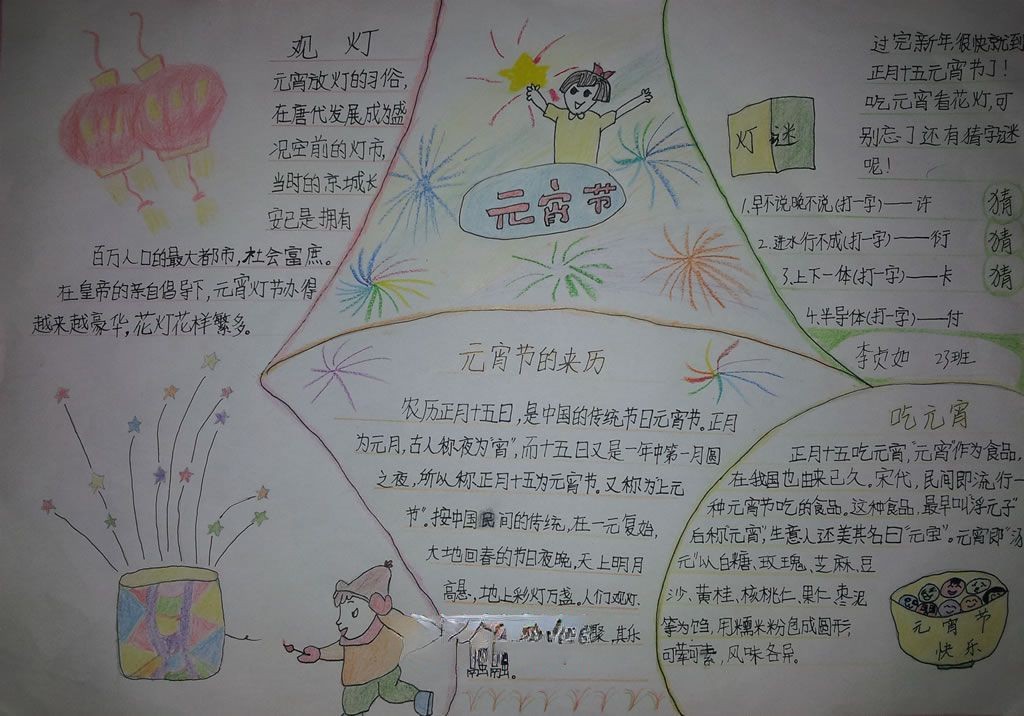 观 灯
元宵放灯的习俗,
在唐代发展成为盛
况空前的灯市,
当时的京城长
安已是拥有
百万人口的最大都市,社会富庶。
在皇帝的亲自倡导下,元宵灯节办得
越来越豪华,花灯花样繁多。
元宵节
过完新年,很快就到
正月十五元宵节了!
吃元宵看花灯,可
别忘了还有猜字谜
呢!
灯谜
1.早不说晚不说(打一字)——许
猜
2.进水行不成(打一字)——衍
猜
3.上下一体(打一字)——卡
猜
4.半导体(打一字)——付
李贞如 23班
元宵节的来历
农历正月十五日,是中国的传统节日元宵节。正月
为元月,古人称夜为“宵”,而十五日又是一年中第一月圆
之夜,所以称正月十五为元宵节。又称为“上元
节”。按中国民间的传统,在一元复始,
大地回春的节日夜晚,天上明月
高悬,地上彩灯万盏。人们观灯、
聚,其乐
融融。
吃元宵
正月十五吃元宵,“元宵”作为食品,
在我国也由来已久,宋代,民间即流行一
种元宵节吃的食品。这种食品,最早叫“浮元子”
后称“元宵”,生意人还美其名曰“元宝”。元宵即“汤
元”以白糖、玫瑰、芝麻、豆
沙、黄桂、核桃仁、果仁、枣泥
等为馅,用糯米粉包成圆形,
可荤可素,风味各异。
元宵节
快乐